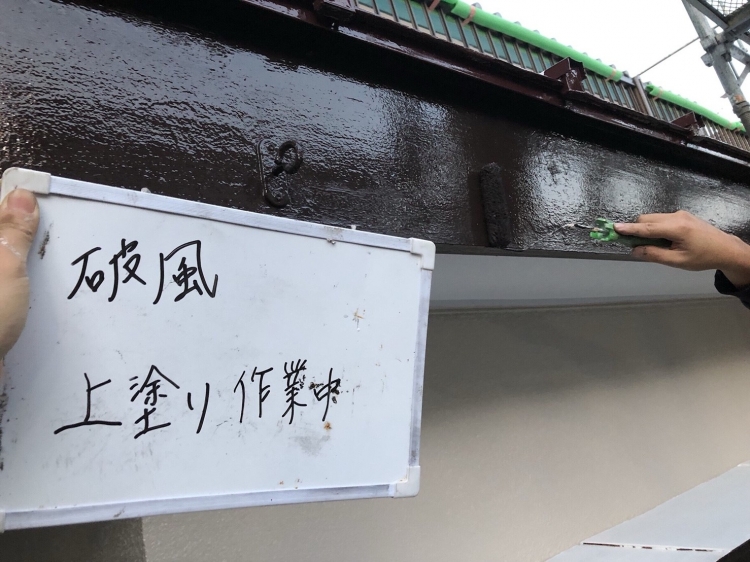 破風
上塗り作業中